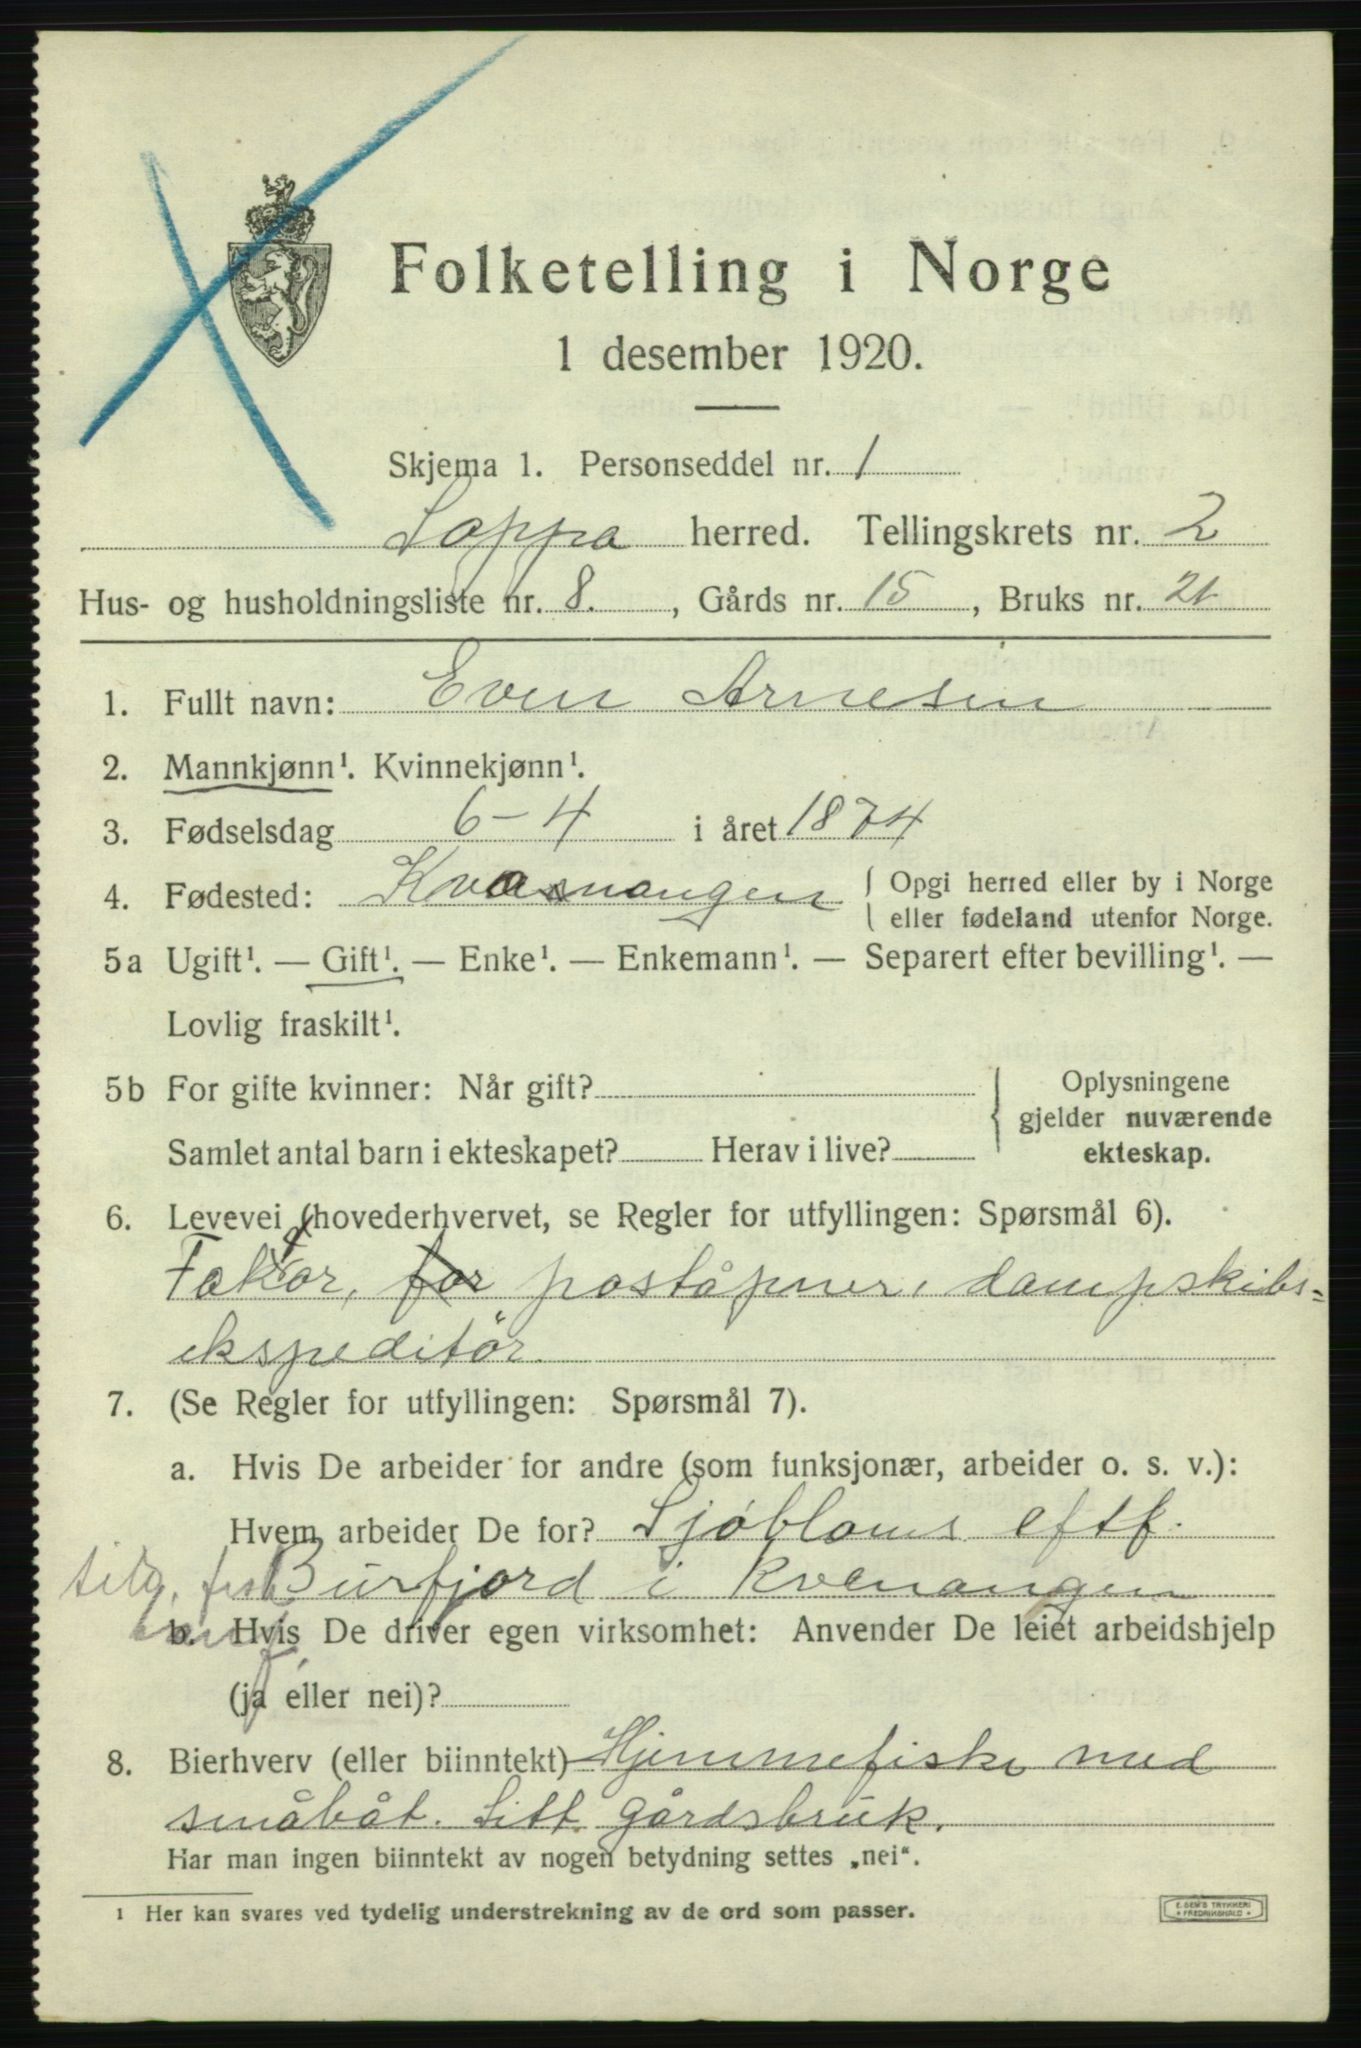 Folketelling i Norge
1 desember 1920.
Skjema 1. Personseddel nr. 1
Loppa herred. Tellingskrets nr. 2
Hus- og husholdningsliste nr. 8. , Gårds nr. 15 , Bruks nr. 21
1. Fullt navn: Even Arnesen
2. Mannkjønn¹. Kvinnekjønn¹.
3. Fødselsdag 6-4 i året 1874
4. Fødested: Kvænangen { Opgi herred eller by i Norge
eller fødeland utenfor Norge.
5a Ugift¹. — Gift¹. — Enke¹. — Enkemann¹. — Separert efter bevilling¹. —
Lovlig fraskilt¹.
5b For gifte kvinner: Når gift? { Oplysningene
gjelder nuværende
Samlet antal barn i ekteskapet? Herav i live? ekteskap.
6. Levevei (hovederhvervet, se Regler for utfyllingen: Spørsmål 6).
Faktor, for poståpner, dampskibs=
ekspeditör
7. (Se Regler for utfyllingen: Spørsmål 7).
a. Hvis De arbeider for andre (som funksjonær, arbeider o. s. v.):
Hvem arbeider De for? Sjöbloms eftf.
Burfjord i Kvenangen
b. Hvis De driver egen virksomhet: Anvender De leiet arbeidshjelp
(ja eller nei)?
8. Bierhverv (eller biinntekt) Hjemmefiske med
småbåt. Litt gårdsbruk.
Har man ingen biinntekt av nogen betydning settes „nei“.
¹ Her kan svares ved tydelig understrekning av de ord som passer.
E. SEM'S TRYKKERI
FREDRIKSHALD